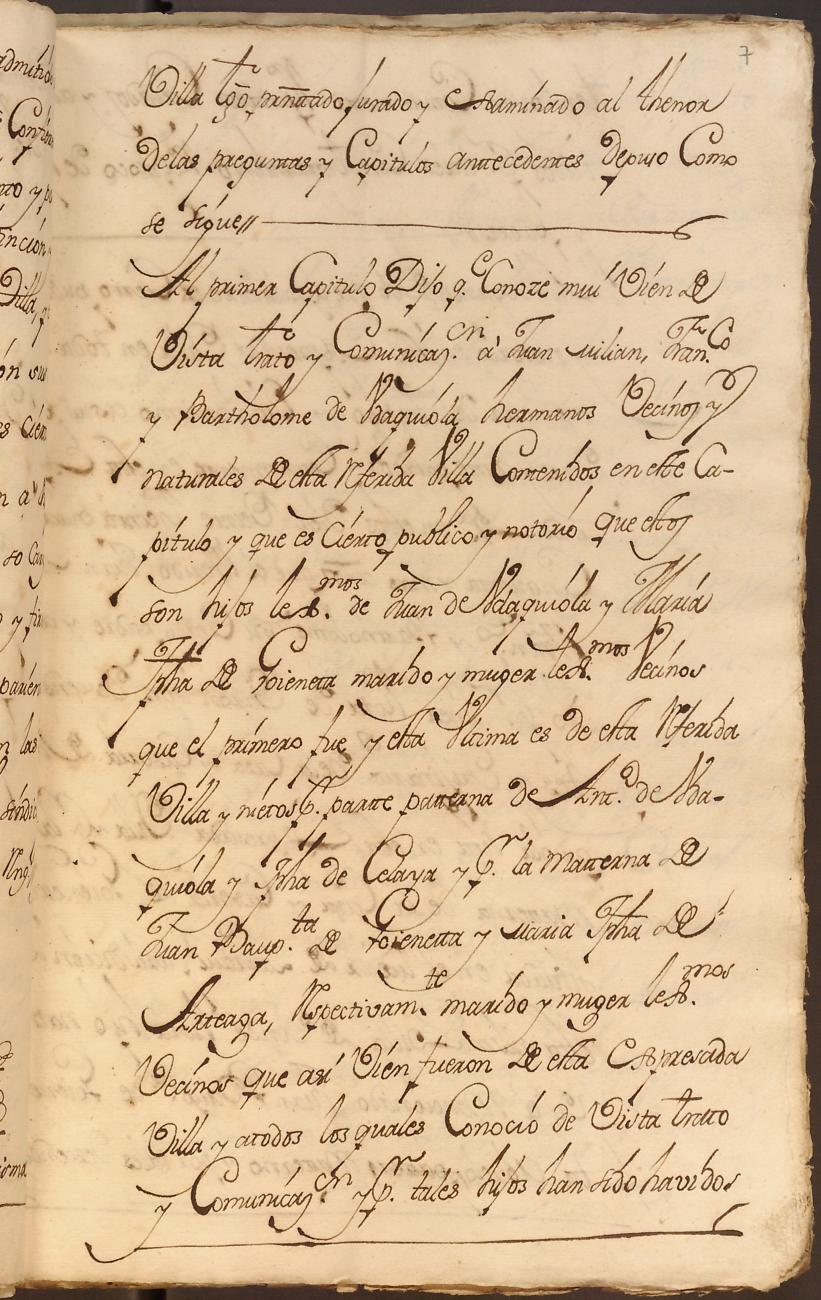 7
Villa tgō prñtado, jurado y examinado al thenor
de las preguntas y Capitulos antecedentes depuso Como
se sigue//
Al primer Capitulo Dijo q.e Conoze mui vien de
Vista trato y Comunicaz.on a Juan Milian, Fran.co
y Bartholome de Ybaguiola hermanos Vecinos y
naturales de esta referida Villa Contenidos en este Ca-
pitulo y que es Cierto publico y notorio que estos
son hijos lex.mos de Juan de Ybaguiola y Maria
Jpha de Goieneta marido y muger lex.mos Vecinos
que el primero fue y esta Vltima es de esta referida
Villa y nietos p.r parte patterna de Ant.o de Yba-
guiola y Jpha de Celaya y p.r la matterna de
Juan Baup.ta de Goienetta y Maria Jpha de
Arteaga, respectivam.te marido y muger lex.mos
Vecinos que asi vien fueron de esta expresada
Villa y atodos los quales Conoció de Vista trato
y Comunicaz.on y p.r tales hijos han sido havidos
admitio